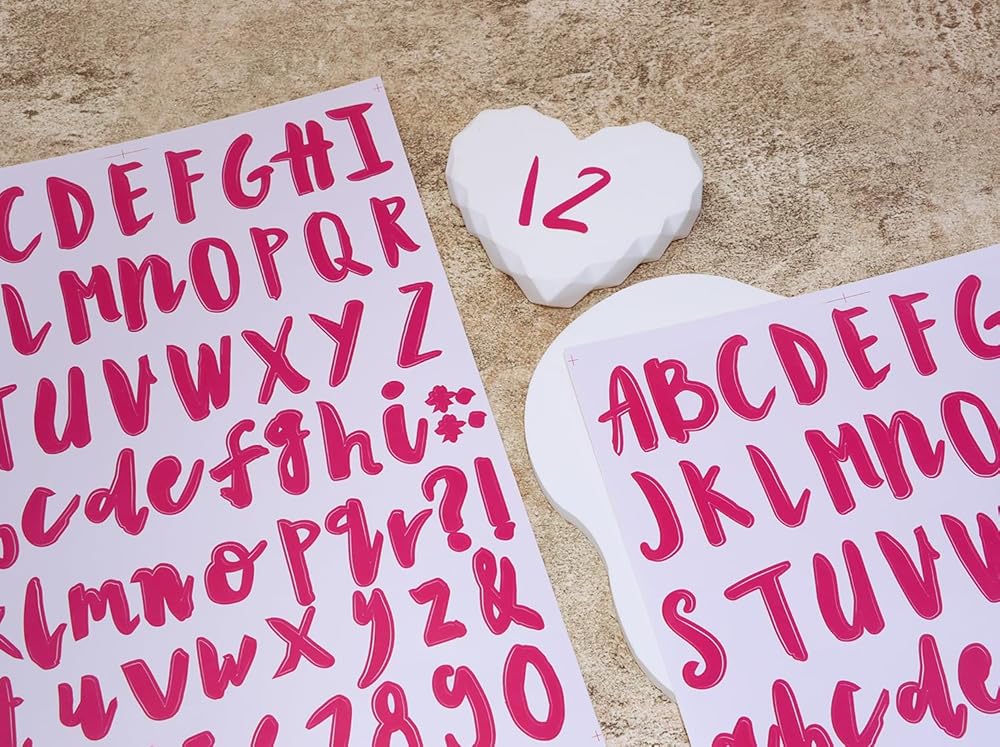 C D E F G H I
L M N O P Q R
T U V W X Y Z
b c d e f g h i
k l m n o p q r ? !
t u v w x y z &
6 7 8 9 0
12
A B C D E F G
J K L M N O
S T U V W
a b c d e